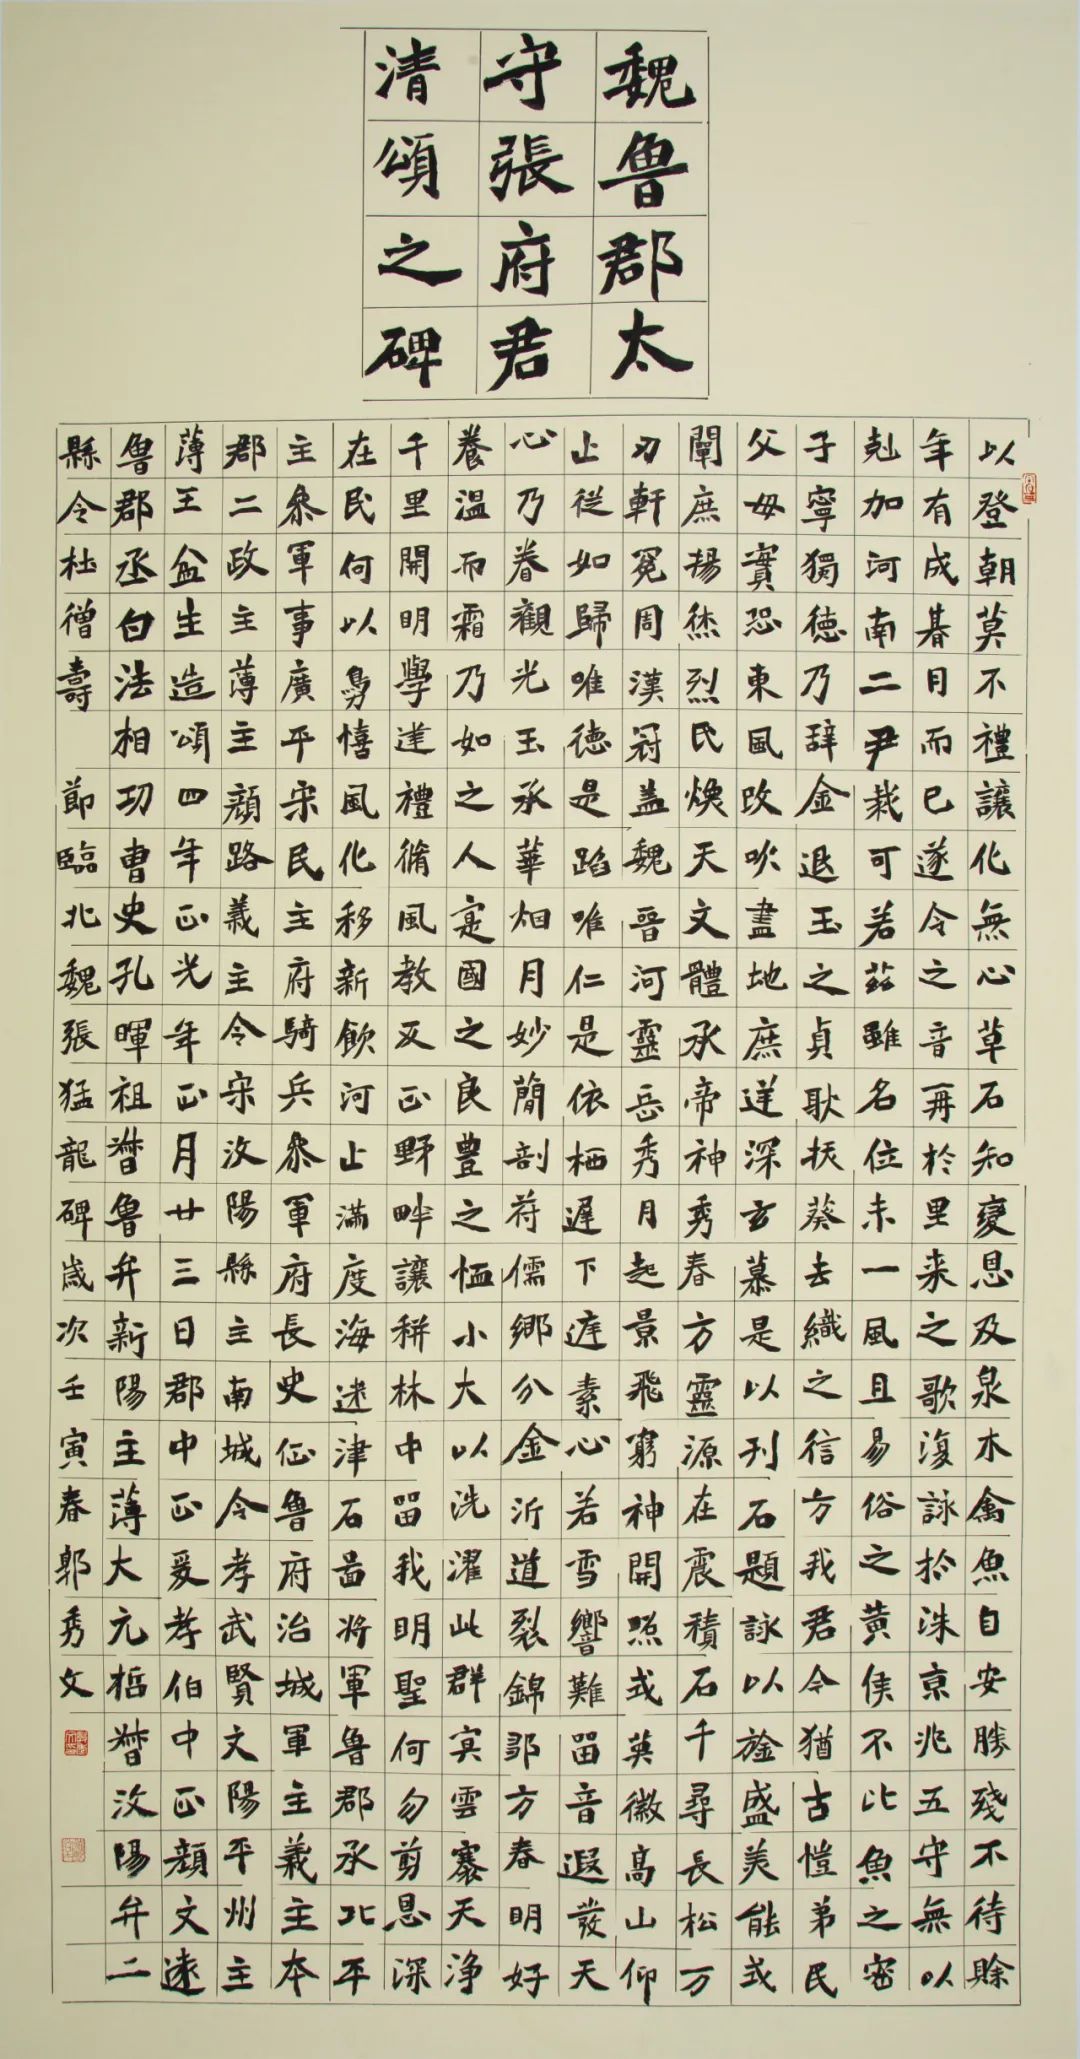 魏魯郡太
守張府君
清頌之碑
以登朝莫不禮讓化無心草石知變恩及泉木禽魚自安勝殘不待賒
年有成朞月而已遂令之音再於里来之歌復詠於洙京兆五守無以
剋加河南二尹裁可若茲雖名位未一風且易俗之黄侯不比魚之密
子寧獨德乃辞金退玉之貞耿拔葵去織之信方我君令猶古愷弟民
父母實恐東風改吹盡地庶遅深玄慕是以刊石題詠以旌盛美能或
闡庶揚烋烈民煥天文體承帝神秀春方靈源在震積石千尋長松万
刃軒冕周漢冠盖魏晋河靈岳秀月起景飛窮神開照式英徽高山仰
止從如歸唯德是蹈唯仁是依栖遲下遅素心若雪響難留音遐發天
心乃眷觀光玉承華烟月妙簡剖符儒鄉分金沂道裂錦邹方春明好
養温而霜乃如之人寔國之良豊之恤小大以洗濯此群冥雲褰天净
千里開明學建禮脩風教反正野畔讓耕林中留我明聖何勿剪恩深
在民何以勇憘風化移新飲河止滿度海迷津石啚将軍魯郡承北平
主叅軍事廣平宋民主府騎兵叅軍府長史征魯府治城軍主義主本
郡二政主薄主顔路義主令宋汶陽縣主南城令孝武賢文陽平州主
薄王盆生造頌四年正光年正月廿三日郡中正爰孝伯中正顔文遠
魯郡丞白法相功曹史孔暉祖榃魯弁新陽主薄大元哲榃汶陽弁二
縣令杜僧壽　節臨北魏張猛龍碑歲次壬寅春郭秀文